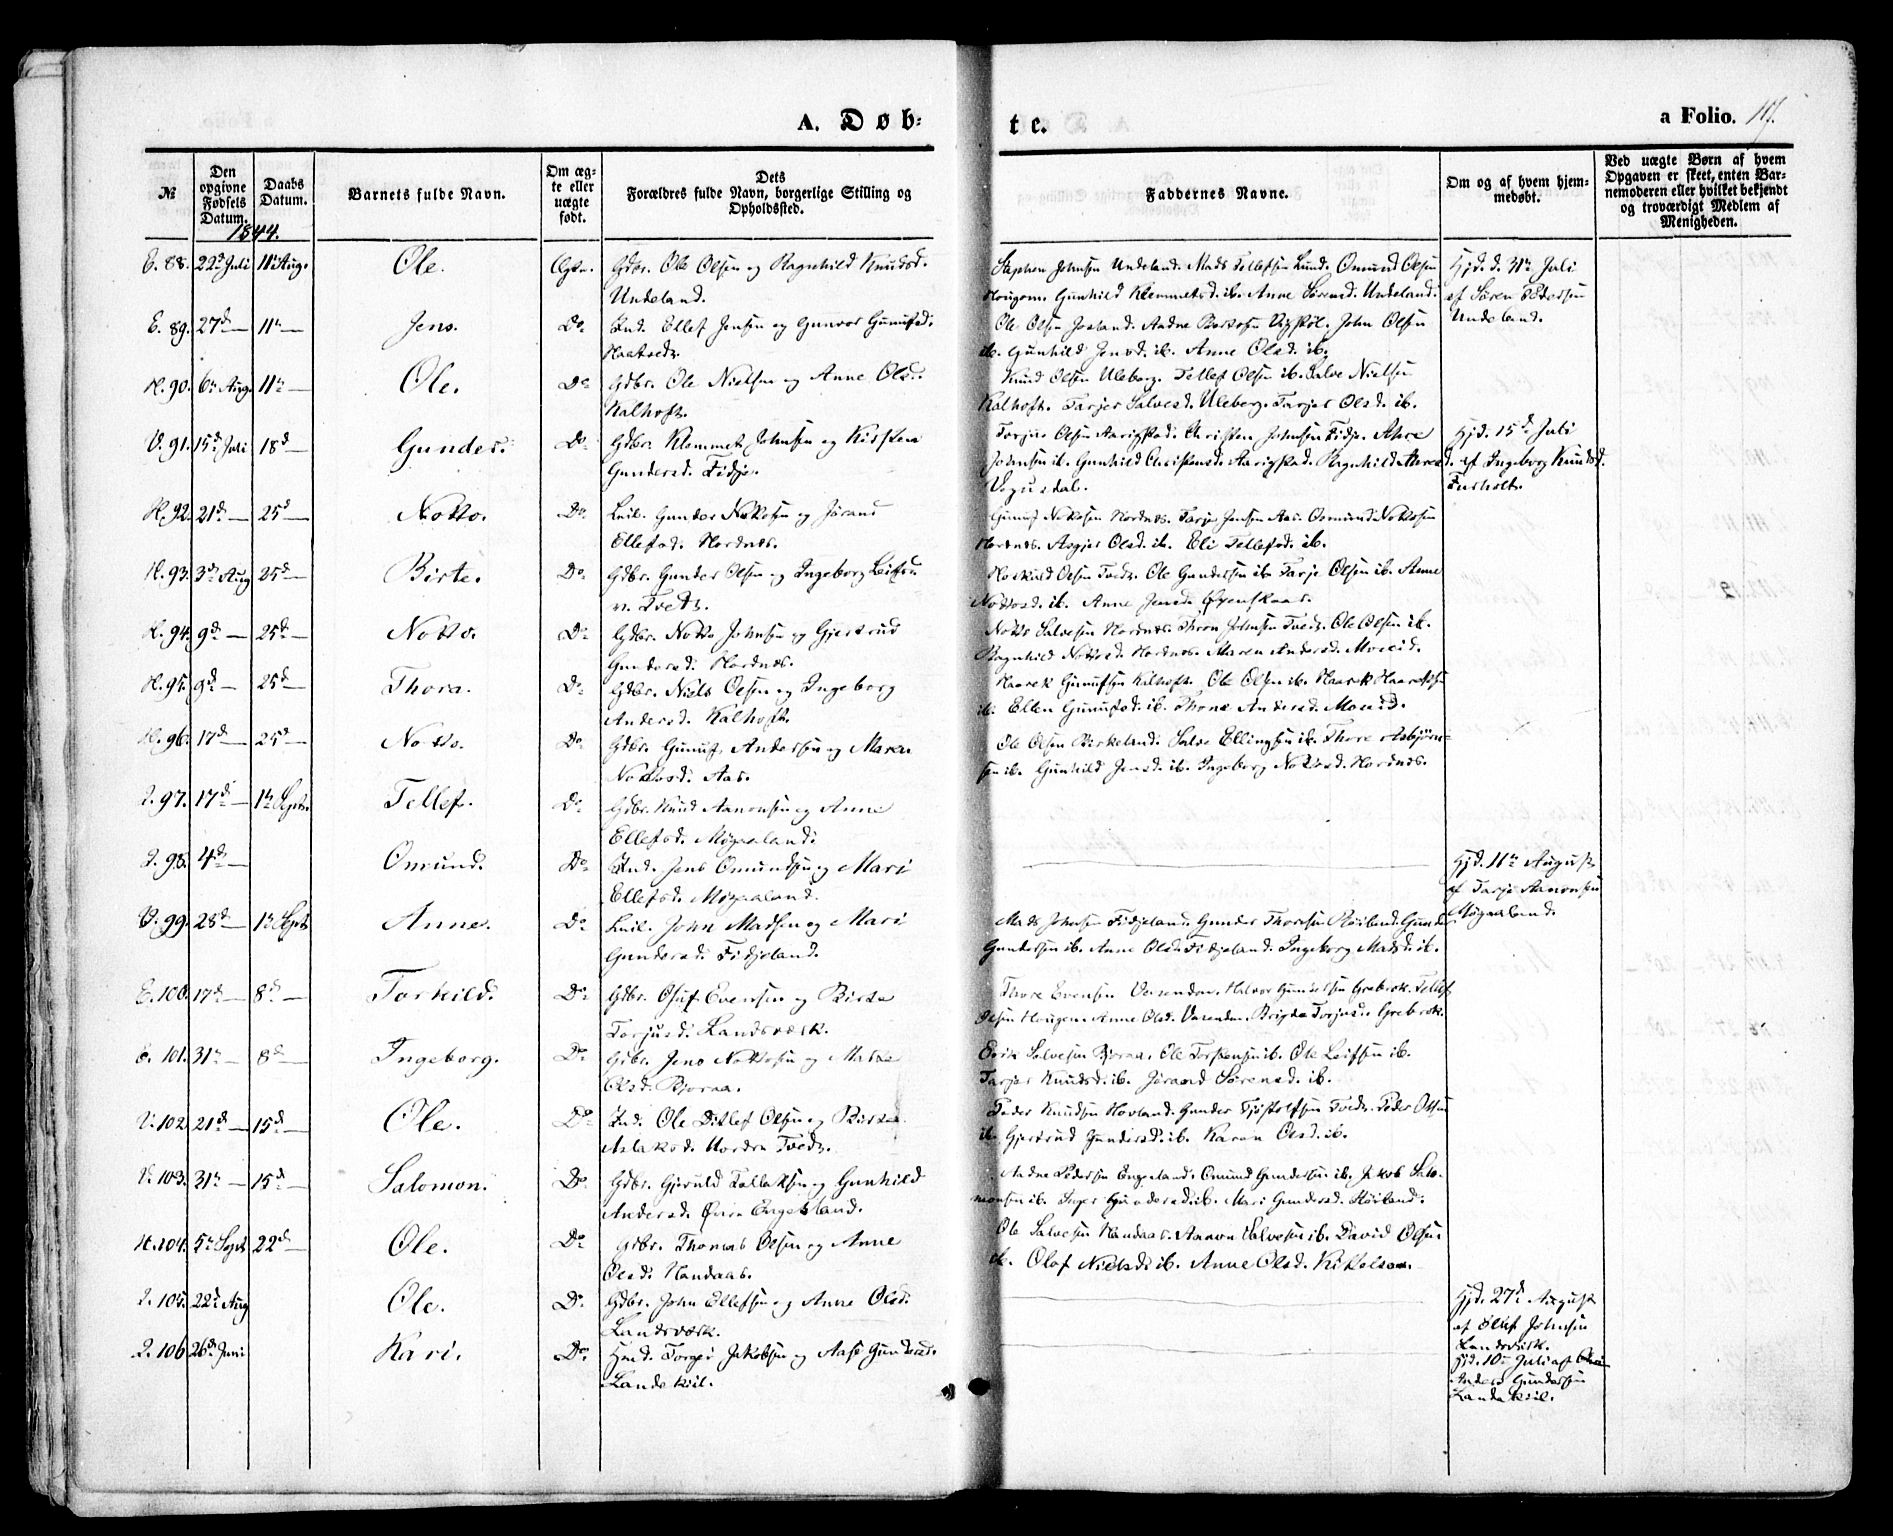 A. Døb-
te.
a Folio. 107.
№
Den opgivne Fødsels Datum.
Daabs Datum.
Barnets fulde Navn.
Om ægte eller uægte født.
Dets Forældres fulde Navn, borgerlige Stilling og Opholdssted.
Faddernes Navne.
Om og af hvem hjemmedøbt.
Ved uægte Børn af hvem Opgaven er skeet, enten Barnemoderen eller hvilket bekjendt og troværdigt Medlem af Menigheden.
1844.
E. 88. 22d Juli 11te Aug. Ole. Ægte. Gdbr. Ole Olsen og Ragnhild Knudsd. Undeland.
Stephen Johnsen Undeland. Mads Tellefsen Lund. Omund Olsen
Hougom. Gunhild Klemmetsd. ib. Anne Sørensd. Undeland.
Hjd. d. 31te Juli
af Søren Pedersen
Undeland.
E. 89. 27d — 11te — Jens. Do. Ind. Ellef Jensen og Gunvor Gunufsd.
Ole Olsen Josland. John Olsen
ib. Gunhild Jensd. ib. Anne Olsd. ib.
H. 90. 6te Aug. 11te — Ole. Do. Gdbr. Ole Nielsen og Anne Olsd.
Kalhoft.
Knud Olsen Uleberg. Tellef Olsen ib. Salve Nielsen
Kalhoft. Tarjer Salvesd. Uleberg. Tarjer Olsd. ib.
V. 91. 15d Juli 18d — Gunder. Do. Gdbr. Klemmet Johnsen og Kirsten
Gundersd. Fidje.
Torjus Olsen Aarigstad. Christen Johnsen Fidje.
Johnsen ib. Gunhild Christensd. Aarigstad. Ragnhild
Vegusdal.
Hjd. 15d Juli
af Ingeborg Knudsd.
H. 92. 21d — 25d — Notto. Do. Leil. Gunder Nottosen og Jørand
Ellefsd. Hordnes.
Gunuf Nottosen Hordnes. Tarje Jensen Aas. Osmund Nottosen
Hordnes. Asgjer Olsd. ib. Eli Tellefsd. ib.
H. 93. 3d Aug 25d — Birte. Do. Gdbr. Gunder Olsen og Ingeborg Leifsd.
n. Tvedt.
Olsen Tvedt. Ole Gundersen ib. Tarje Olsen ib. Anne
Nottosd. ib. Anne Jensd.
H. 94. 9d — 25d — Notto. Do. Gdbr. Notto Johnsen og Gjertrud
Gundersd. Hordnes.
Notto Salvesen Hordnes. Thron Johnsen Tvedt. Ole Olsen ib.
Ragnhild Nottosd. Hordnes. Maren Andersd. Moseid.
H. 95. 9d — 25d — Thora. Do. Gdbr. Niels Olsen og Ingeborg
Andersd. Kalhoft.
Haavek Gunufsen Kalhoft. Ole Olsen ib. Haavek
ib. Ellen Gunufsd. ib. Thone Andersd. Moseid.
H. 96. 17d — 25d — Notto. Do. Gdbr. Gunuf Andersen og Maren
Nottosd. Aas.
Ole Olsen Birkeland. Salve Ellingsen ib. Thore Asbjørn-
sen ib. Gunhild Jensd. ib. Ingeborg Nottosd. Hordnes.
97. 17d — 1te Septr. Tellef. Do. Gdbr. Knud Aanonsen og Anne
Ellefsd. Møgaaland.
98. 4d — Omund. Do. Ind. Jens Omundsen og Mari
Ellefsd. Møgaaland.
Hjd. 11te August
af Tarje Aanonsen
Møgaaland.
V. 99. 28d — 1te Septr Anne. Do. Leil. John Madsen og Mari
Gundersd. Fidjeland.
Mads Johnsen Fidjeland. Gunder Thoresen Røiland. Gunder
Gundersen ib. Anne Olsd. Fidjeland. Ingeborg Madsd. ib.
E. 100. 17d — 8d — Torkild. Do. Gdbr. Oluf Evensen og Birte
Torjusd. Landsværk.
Thore Evensen Verenden. Halvor Gundersen Grebrok. Tellef
Olsen Hougen. Anne Olsd. Verenden. Brigte Torjusd. Grebrok.
E. 101. 31te — 8d — Ingeborg. Do. Gdbr. Jens Nottosen og Marte
Olsd. Bjoraa.
Erik Salvesen Bjoraa. Ole Torstensen ib. Ole Leifsen ib.
Tarjer Knudsd. ib. Jørand Sørensd. ib.
V. 102. 21d — 15d — Ole. Do. Ind. Ole Ditlef Olsen og Birte
Aslaksd. Nordre Tvedt.
Peder Knudsen Hovland. Gunder Fjøstolfsen Tvedt. Peder Olsen
ib. Gjertrud Gundersd. ib. Karen Olsd. ib.
V. 103. 31te — 15d — Salomon. Do. Gdbr. Gjeruld Tallaksen og Gunhild
Andersd. Øvre Engesland.
Andre Pedersen Engesland. Omund Gundersen ib. Jakob Salo-
monsen ib. Inger ib. Mari Gundersd. Røiland.
H. 104. 5te Septr 22d — Ole. Do. Gdbr. Thomas Olsen og Anne
Olsd. Handaas.
Ole Salvesen Handaas. Aanon Salvesen ib. David Olsen
ib. Olaf Nielsd. ib. Anne Olsd. Kittelsaa.
105. 22d Aug Ole. Do. Gdbr. John Ellefsen og Anne Olsd.
Landsværk.
Hjd. 27d August
af Ellef Johnsen
Landsværk.
106 26d Juni Kari. Do. Hmd. Torger Jakobsen og Aase Gundersd.
Landekiil.
Hjd. 10d Juli af
Anders Gundersen
Landekiil.